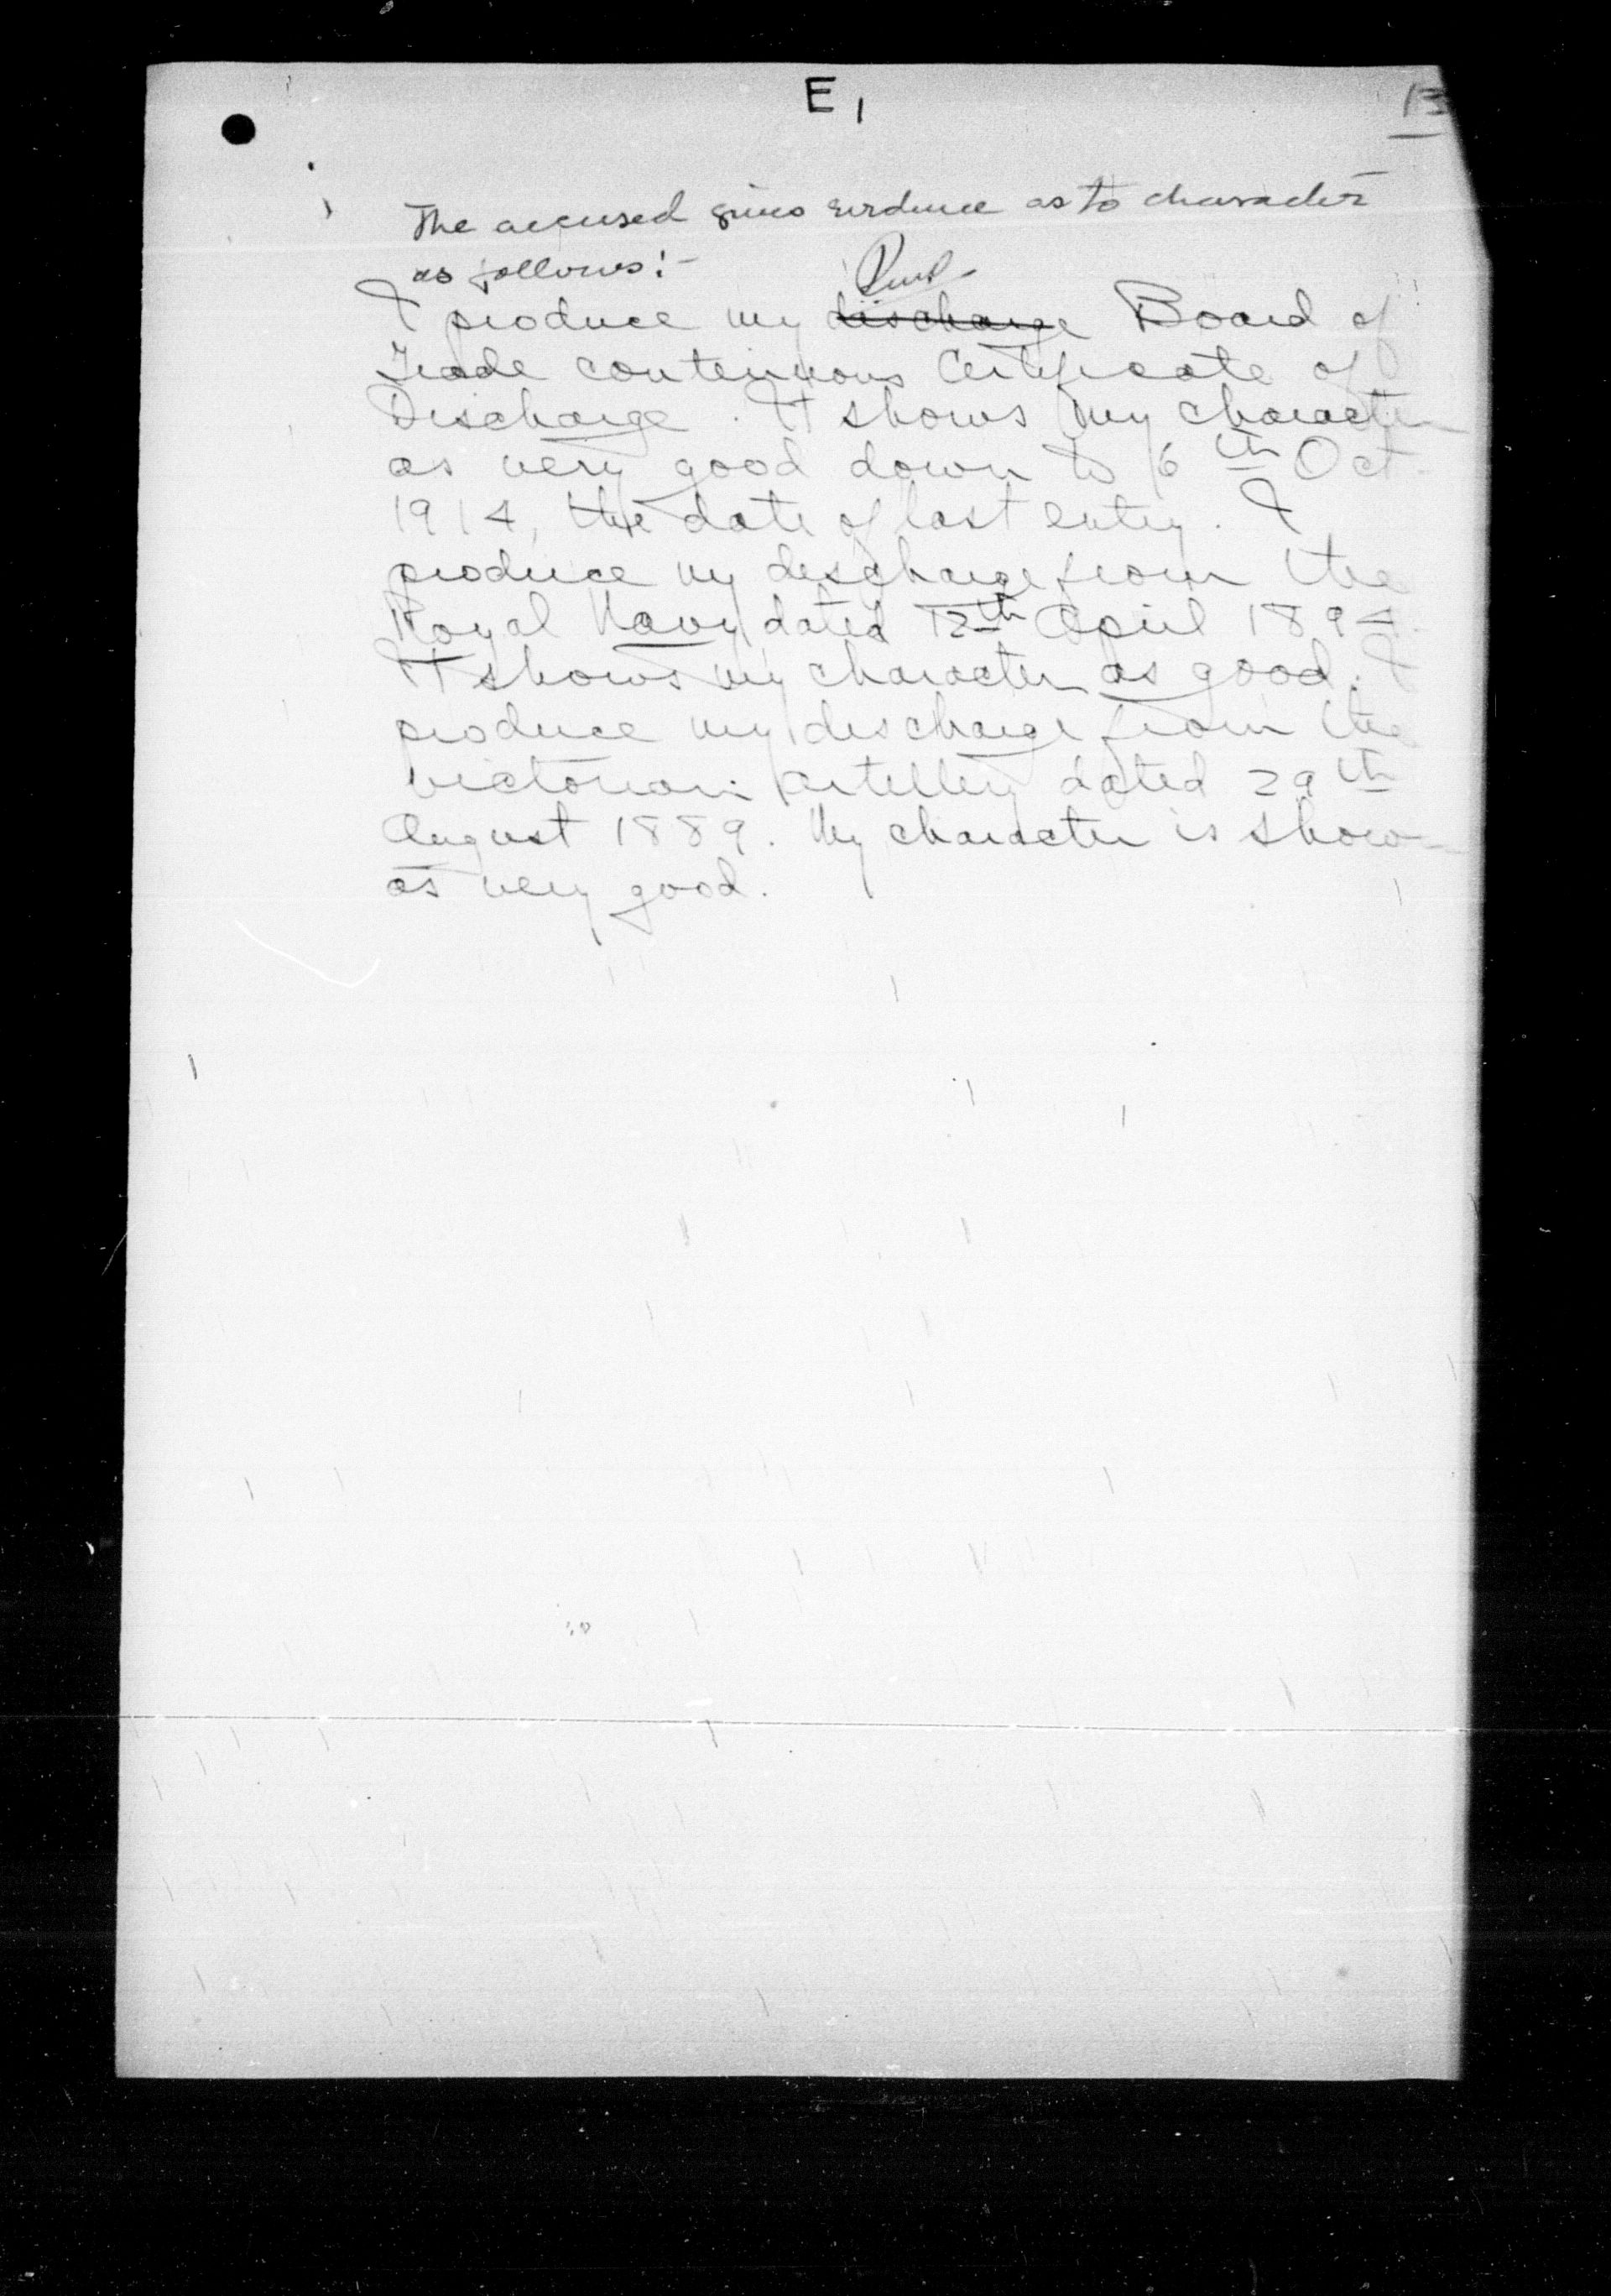 E 1
13
The accused gives evidence as to character
as follows:-
I produce my discharge Board of
Trade continuous Certificate of
Discharge. It shows my character
as very good down to 6th Oct
1914, the date of last entry. I
produce my discharge from the
Royal Navy dated 12th April 1894.
It shows my character as good. I
produce my discharge from the
Victorian Artillery dated 29th
August 1889. My character is shown
as very good.